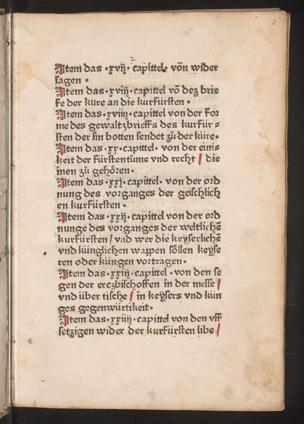 Item das · xvij · capittel · võn wider
sagen ·
Item das · xviij · capittel · võ dez brie
fe der küre an die kurfürsten ·
Item das · xviiij · capittel von der For
me des gewaltzbrieffs des kurfür ⸗
sten der sin botten sendet zů der küre ·
Item das · xx · capittel · von der eini ⸗
keit der fürstentüme vnd recht / die
inen zů gehören ·
Item das · xxj · capittel · von der ord
nung des vorganges der geistlichen
en kurfürsten ·
Item das · xxij · capittel · von der ord
nunge des vorganges der weltliche
kurfürsten / vnd wer die keyserliche
vnd künglichen wappen söllen keyse
ren oder küngen vortragen ·
Item das · xxiij · capittel · von den se
gen der erczbischoffen in der messe /
vnd über tische / in keysers vnd kün
ges gegenwürtikeit ·
Item das · xxiiij · capittel von den vff
setzigen wider der kurfürsten libe /